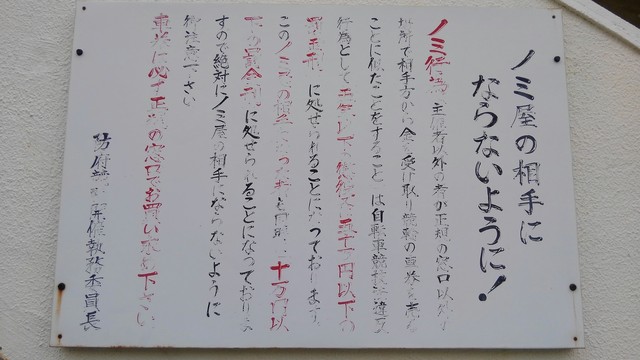 ノミ屋の相手に
ならないように!
ノミ行為 主催者以外の者が正規の窓口以外の
場所で相手方から金を受け取り競輪の車券を売る
ことに似たことをすること は自転車競技法に違反
行為として 五年以下の懲役 五百万円以下の
罰金刑 に処せられることになっております
このノミ屋の相手 になった者も同時に 十万円以
下の罰金刑 に処せられることになっておりま
すので絶対にノミ屋の相手にならないように
御注意下さい
車券は必ず正規の窓口でお買い求め下さい
防府競輪開催執務委員長